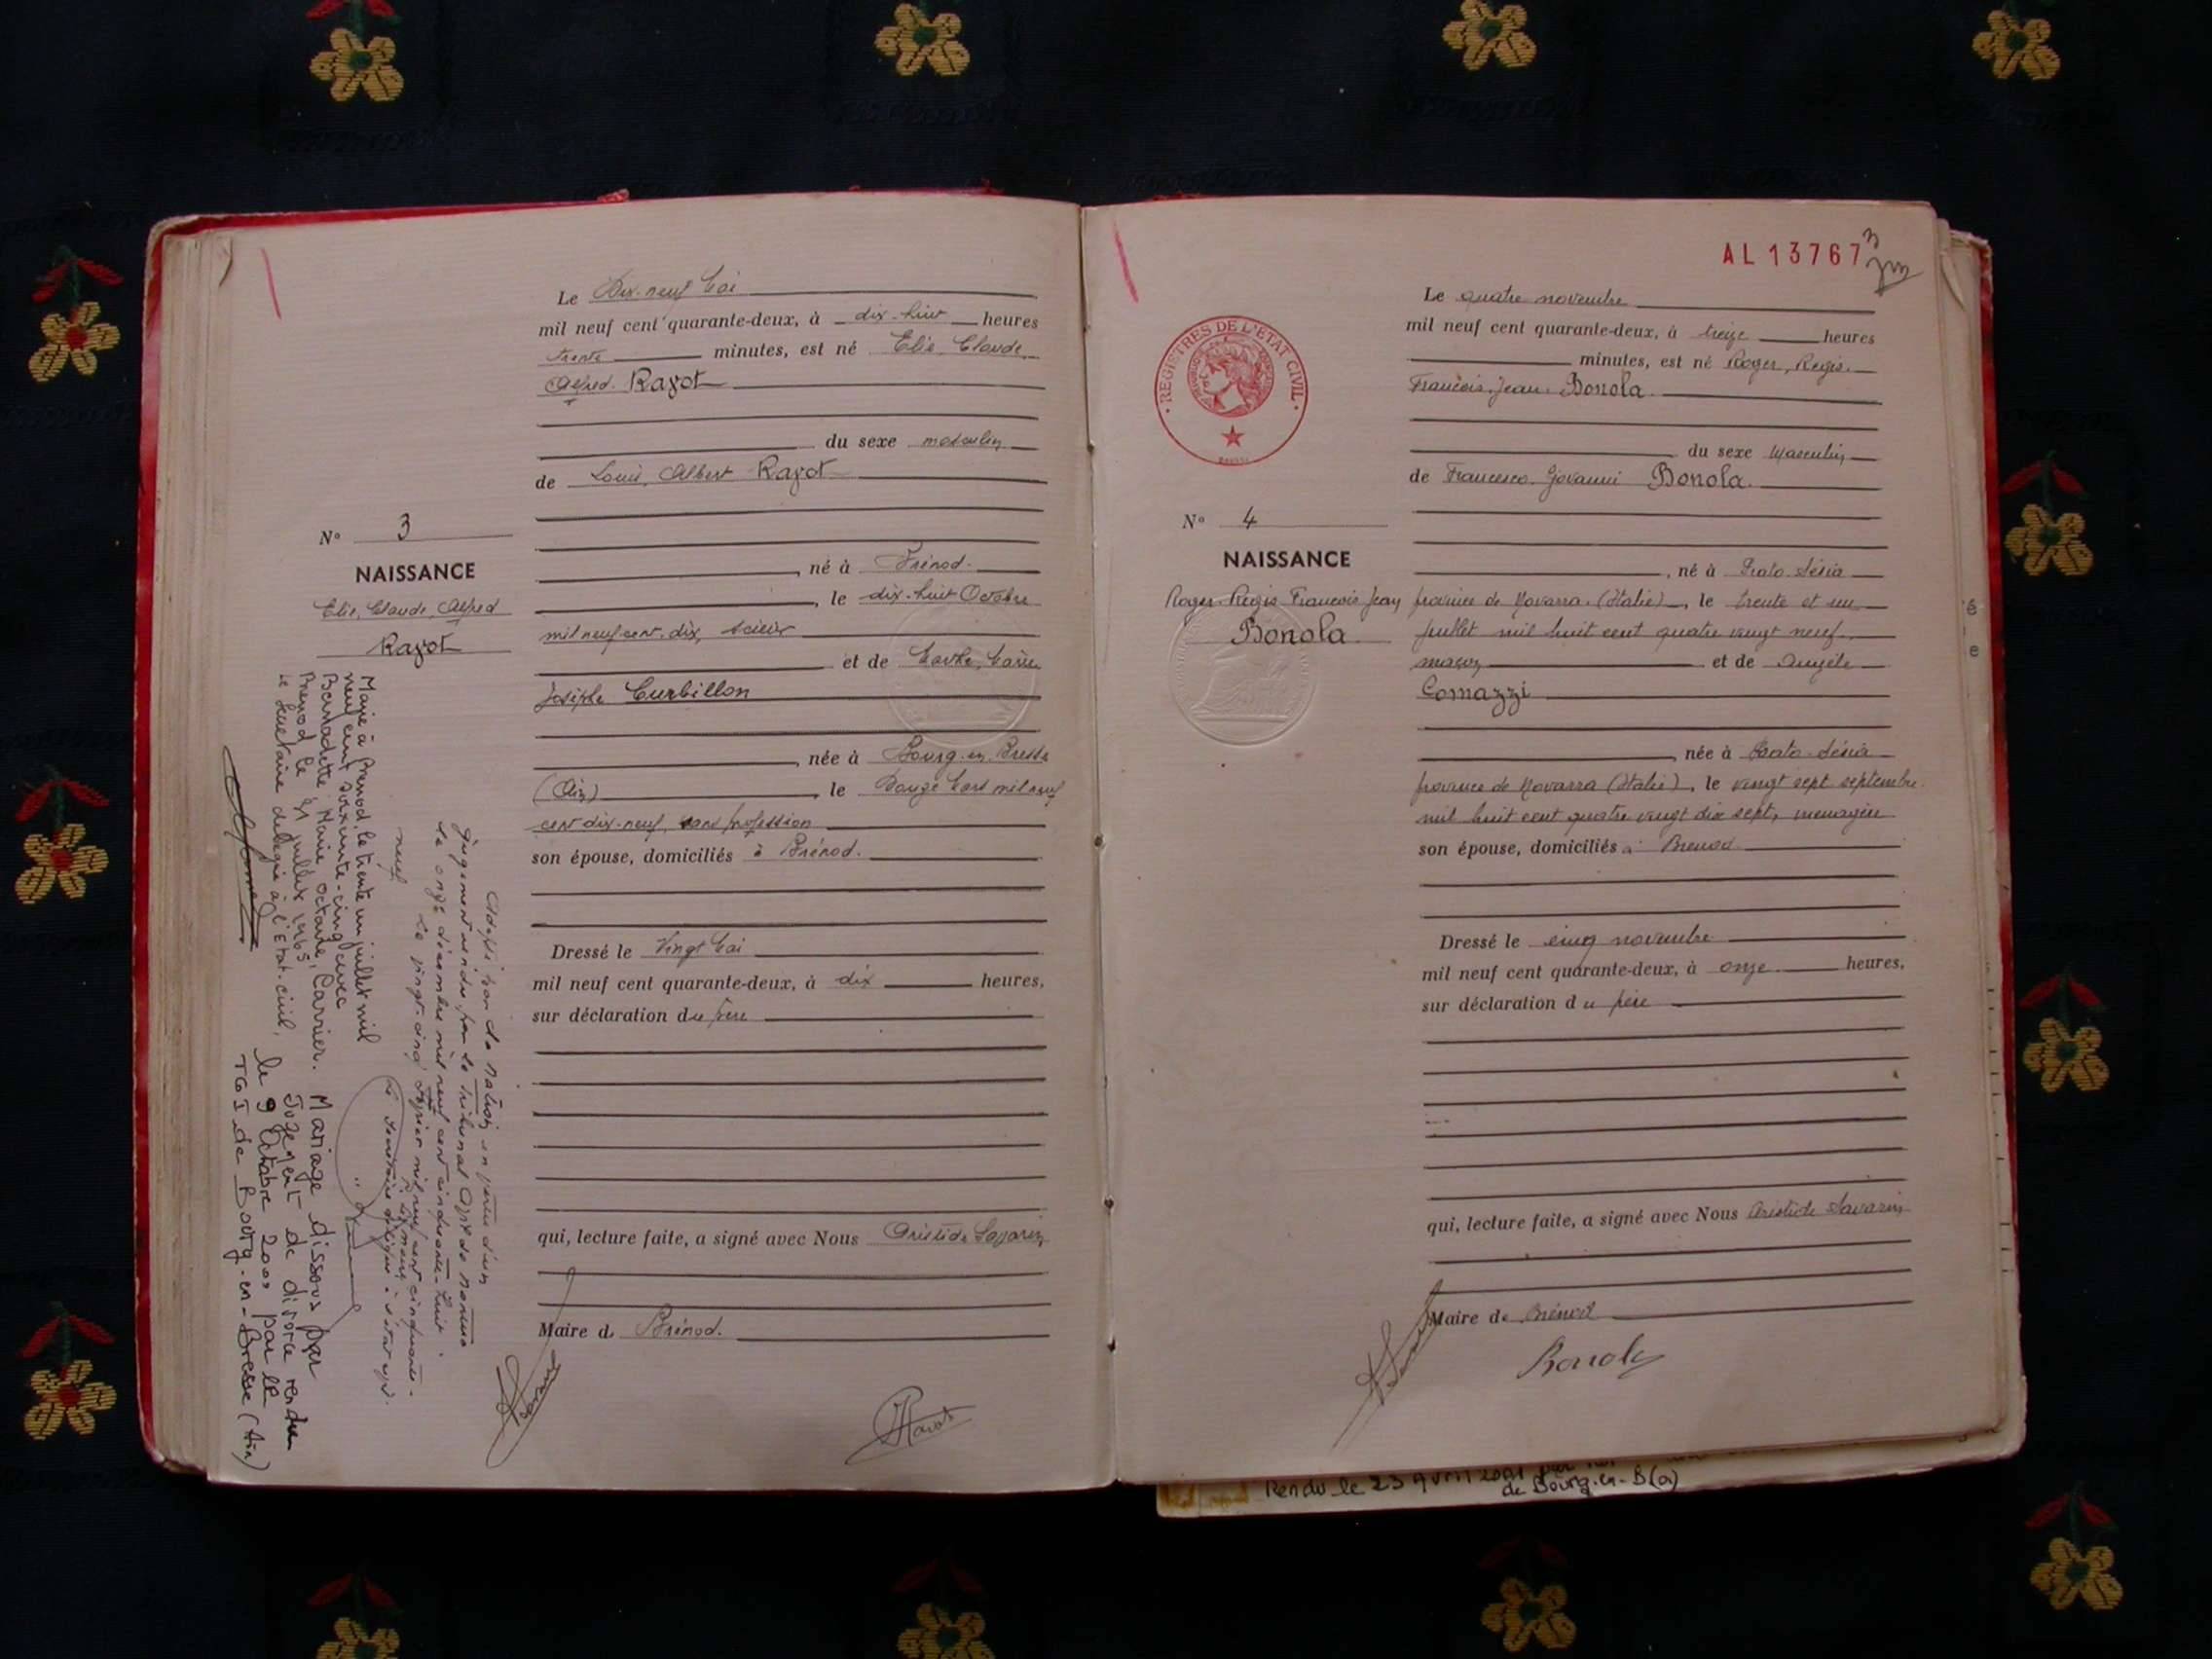 Le Dix-neuf Mai
mil neuf cent quarante-deux, à dix-huit heures
trente minutes, est né Elie, Claude,
Alfred. Razot
du sexe masculin
de Louis, Albert Razot
N° 3
NAISSANCE
Elie, Claude, Alfred
Razot
né à Brénod.
, le dix-huit Octobre
mil neuf cent dix, scieur
et de Marthe, Marie
Josèphe Curbillon
, née à Bourg-en-Bresse
(Ain) , le Douze Mars mil neuf
cent dix-neuf, sans profession
son épouse, domiciliés à Brénod.
Dressé le Vingt Mai
mil neuf cent quarante-deux, à dix heures,
sur déclaration du père
qui, lecture faite, a signé avec Nous Aristide Savarin
Maire de Brénod.
Razot
Marié à Brenod, le trente un juillet mil
neuf cent soixante-cinq avec
Bernadette Marie Octavie, Carrier.
Brenod le 31 juillet 1965
Le Secrétaire délégué à l'Etat-civil,
Mariage dissous par
Jugement de divorce rendu
le 9 Octobre 2001 par le
TGI de Bourg-en-Bresse (Ain)
Adoption de la Nation en vertu d'un
Jugement rendu par le tribunal de Nantua
le onze décembre mil neuf cent cinquante-huit.
Le vingt-cinq mil neuf cent cinquante-
neuf
Le Secrétaire délégué à l'état civil.
AL 13767
3
REGISTRES DE L'ETAT CIVIL
Le quatre novembre
mil neuf cent quarante-deux, à treize heures
minutes, est né Roger, Régis.
François, Jean. Bonola.
du sexe Masculin
de Francesco. Giovanni Bonola.
N° 4
NAISSANCE
Roger. Régis François Jean
Bonola
, né à Prato-Sésia
province de Novarra. (Italie) , le trente et un
juillet mil huit cent quatre vingt neuf.
maçon et de Angèle
Comazzi
, née à Prato-Sésia
province de Novarra (Italie) , le vingt sept septembre
mil huit cent quatre vingt dix sept, ménagère
son épouse, domiciliés à Brenod
Dressé le cinq novembre
mil neuf cent quarante-deux, à onze heures,
sur déclaration du père
qui, lecture faite, a signé avec Nous Aristide Savarin
Maire de Brénod
Bonola
Rendu le 23 Avril 2001 par
de Bourg-en-B(a)